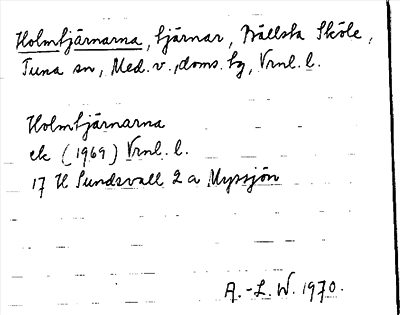 Holmtjärnarna, tjärnar, Prällsta Sköle,
Tuna sn, Med. v. doms. hg, Vrml. l.
Holmtjärnarna
ek (1969) Vrml. l.
17 H Sundsvall 2 a Myssjön
A.-L. W. 1970.